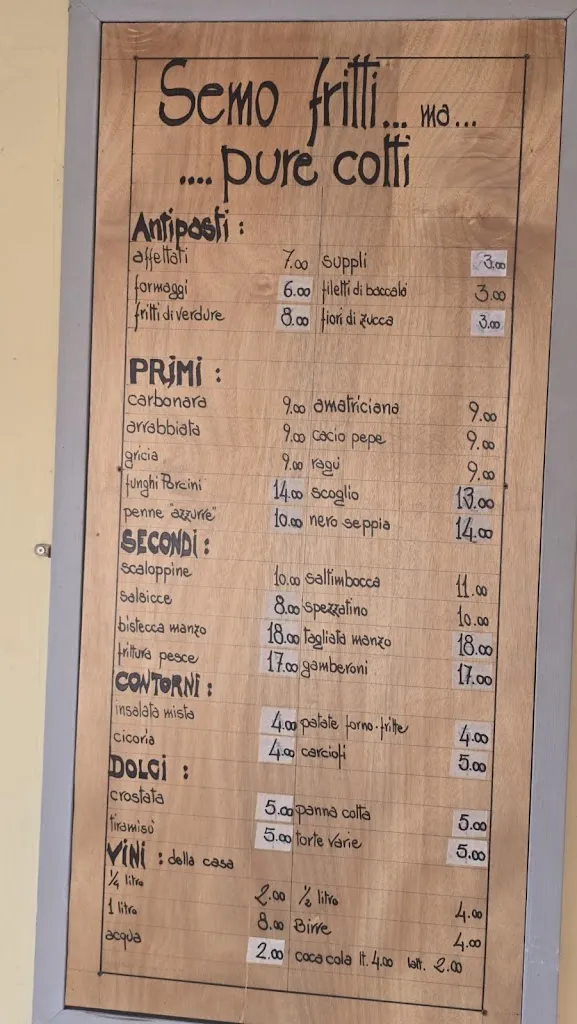 Semo fritti... ma...
.... pure cotti
Antipasti :
affettati 7.00 supplì 3.00
formaggi 6.00 filetti di baccalà 3.00
fritti di verdure 8.00 fiori di zucca 3.00
PRIMI :
carbonara 9.00 amatriciana 9.00
arrabbiata 9.00 cacio pepe 9.00
gricia 9.00 ragù 9.00
funghi Porcini 14.00 scoglio 13.00
penne "azzurre" 10.00 nero seppia 14.00
SECONDI :
scaloppine 10.00 saltimbocca 11.00
salsicce 8.00 spezzatino 10.00
bistecca manzo 18.00 tagliata manzo 18.00
frittura pesce 17.00 gamberoni 17.00
CONTORNI :
insalata mista 4.00 patate forno-fritte 4.00
cicoria 4.00 carciofi 5.00
DOLCI :
crostata 5.00 panna cotta 5.00
tiramisù 5.00 torte varie 5.00
VINI : della casa
1/4 litro 2.00 1/2 litro 4.00
1 litro 8.00 Birre 4.00
acqua 2.00 coca cola lt. 4.00 latt. 2.00